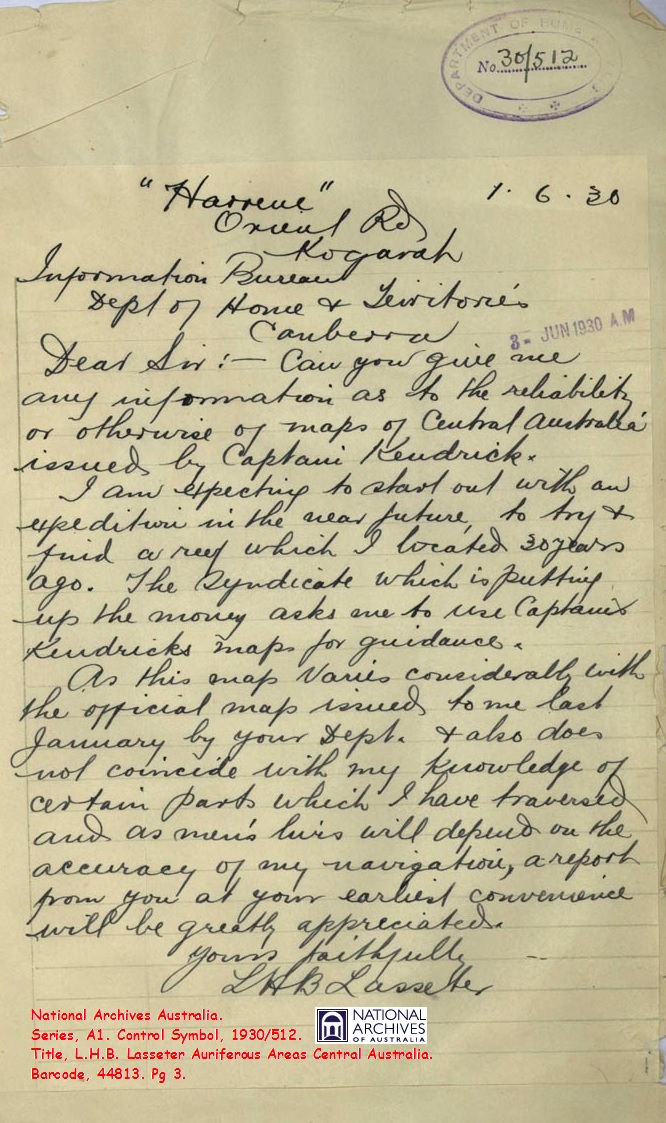 DEPARTMENT OF HOME
No. 30/512
"Harrene"
1.6.30
Orient Rd
Kogarah
Information Bureau
Dept of Home & Territories
Canberra
3- JUN 1930 A.M
Dear Sir:— Can you give me
any information as to the reliability
or otherwise of maps of Central Australia
issued by Captain Kendrick.
I am expecting to start out with an
expedition in the near future, to try &
find a reef which I located 30 years
ago. The syndicate which is putting
up the money asks me to use Captain
Kendricks maps for guidance.
As this map varies considerably with
the official map issued to me last
January by your Dept. & also does
not coincide with my knowledge of
certain parts which I have traversed
and as men's lives will depend on the
accuracy of my navigation, a report
from you at your earliest convenience
will be greatly appreciated.
Yours faithfully
L H B Lasseter
National Archives Australia.
Series, A1. Control Symbol, 1930/512.
NATIONAL
ARCHIVES
OF AUSTRALIA
Title, L.H.B. Lasseter Auriferous Areas Central Australia.
Barcode, 44813. Pg 3.